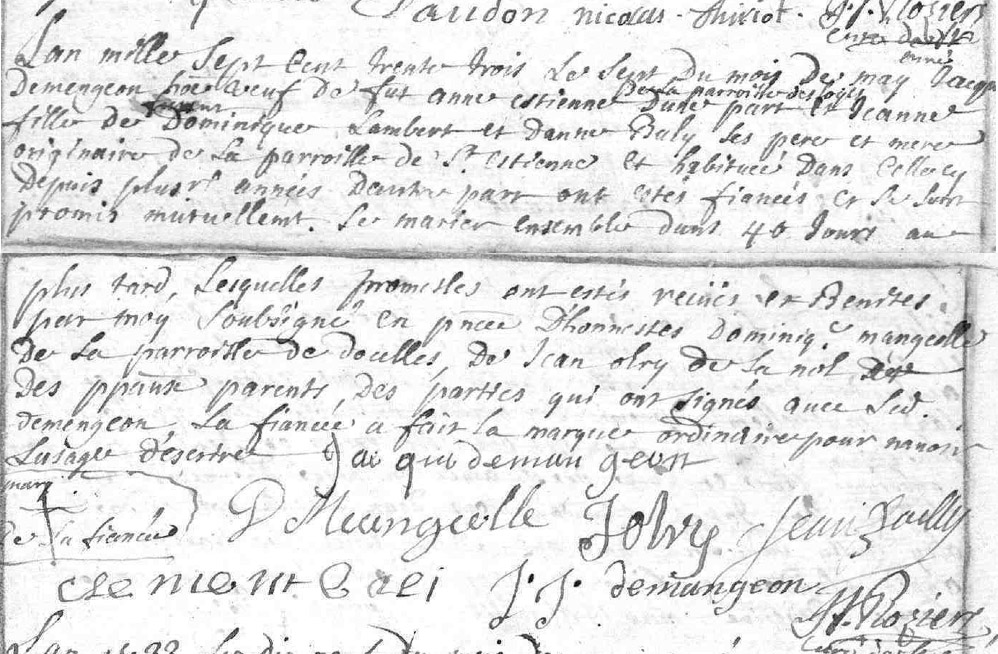 Paudon nicolas thiriot J. J. Roziers
Curé
L'an mille Sept Cent trente trois Le Sept Du mois De may Jacque
Demengeon hoe veuf De fut anne estienne De la parroisse D'une part Et Jeanne
fille de Dominique Lambert et d'anne Baly Ses pere et mere
originaire de La parroisse de St estienne Et habituée Dans Cellecy
Depuis plusrs années D'autre part ont estés fiancés et Se sont
promis mutuellemt. Se marier ensemble dans 40 Jours au
plus tard, Lesquelles promesses ont estés reçües et Benites
par moy Soubsigné En pnce D'honnestes Dominiq.e mangeolle
De La parroisse de docelles, De Jean olry de la nol
Des ppaux parents, Des parties qui ont signés avec Led.
demengeon, La fiancée a fait la marque ordinaire pour navoir
Lusage d'escrire Jaqui demangeon
marq
De La fiancée
D Mangeolle Jolry Jean Bailly
clement J. J. demangeon
J. J. Roziers
Lan